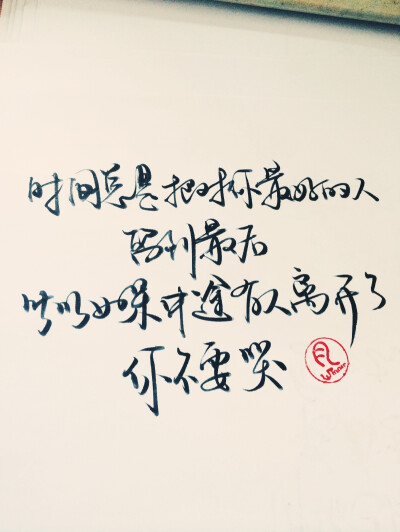 时间总是把对你最好的人
留到最后
所以如果中途有人离开了
你不要哭